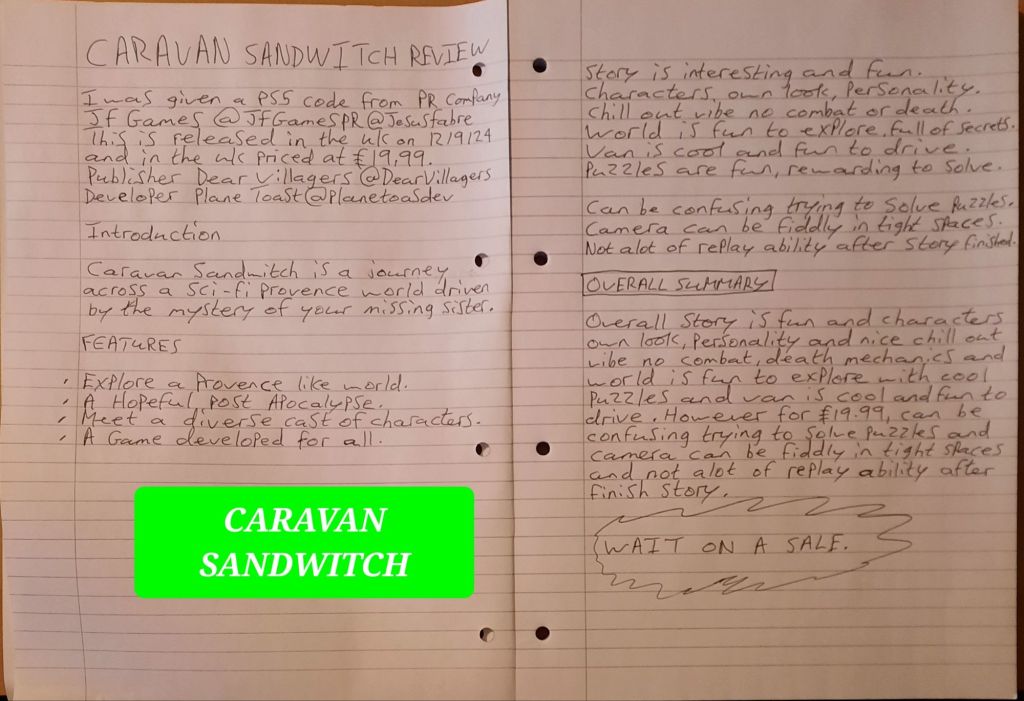 CARAVAN SANDWITCH REVIEW
I was given a PS5 code from PR Company
Jf Games @JfGamesPR @Jesusfabre
This is released in the uk on 12/9/24
and in the uk Priced at £19,99.
Publisher Dear Villagers @DearVillagers
Developer Plane Toast @Planetoasdev
Introduction
Caravan Sandwitch is a journey
across a Sci-fi Provence world driven
by the mystery of your missing sister.
FEATURES
• Explore a Provence like world.
• A Hopeful Post Apocalypse.
• Meet a diverse cast of characters.
• A Game developed for all.
CARAVAN
SANDWITCH
Story is interesting and fun.
Characters, own look, Personality.
Chill out vibe no combat or death.
World is fun to explore, full of secrets.
Van is cool and fun to drive.
Puzzles are fun, rewarding to solve.
Can be confusing trying to Solve Puzzles.
Camera can be fiddly in tight spaces.
Not alot of replay ability after Story finished.
OVERALL SUMMARY
Overall Story is fun and characters
own look, Personality and nice chill out
vibe no combat, death mechanics and
world is fun to explore with cool
Puzzles and van is cool and fun to
drive. However for £19.99, can be
confusing trying to Solve Puzzles and
camera can be fiddly in tight spaces
and not alot of replay ability after
finish Story.
WAIT ON A SALE.